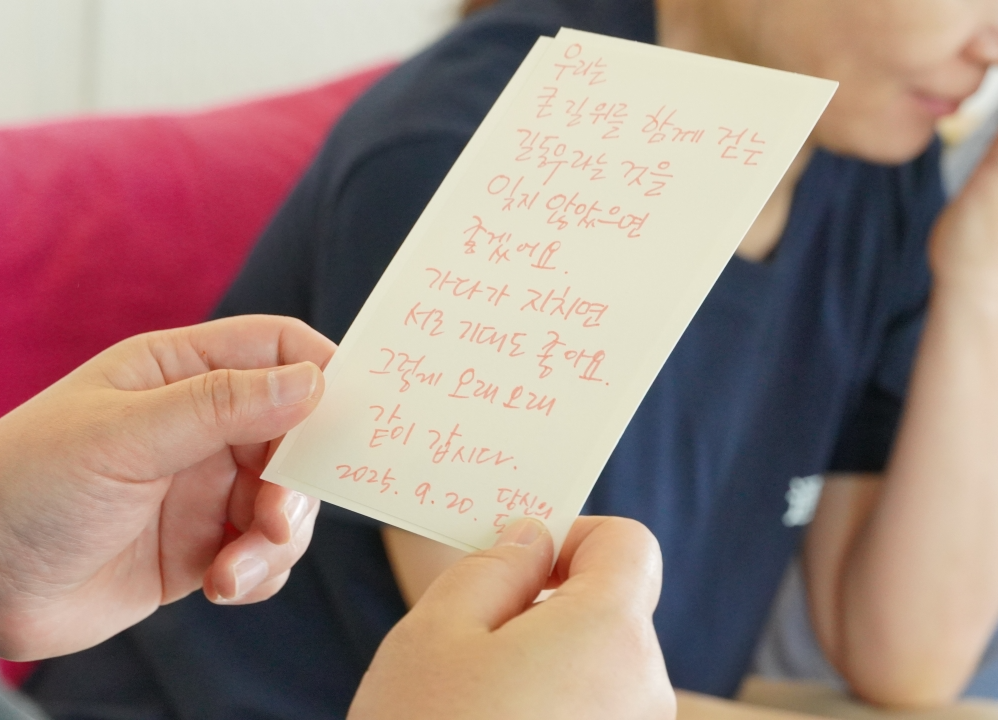 우리는
큰 길 위를 함께 걷는
길동무라는 것을
잊지 않았으면
좋겠어요.
가다가 지치면
서로 기대도 좋아요.
그렇게 오래오래
같이 갑시다.
2025. 9. 20. 당신의